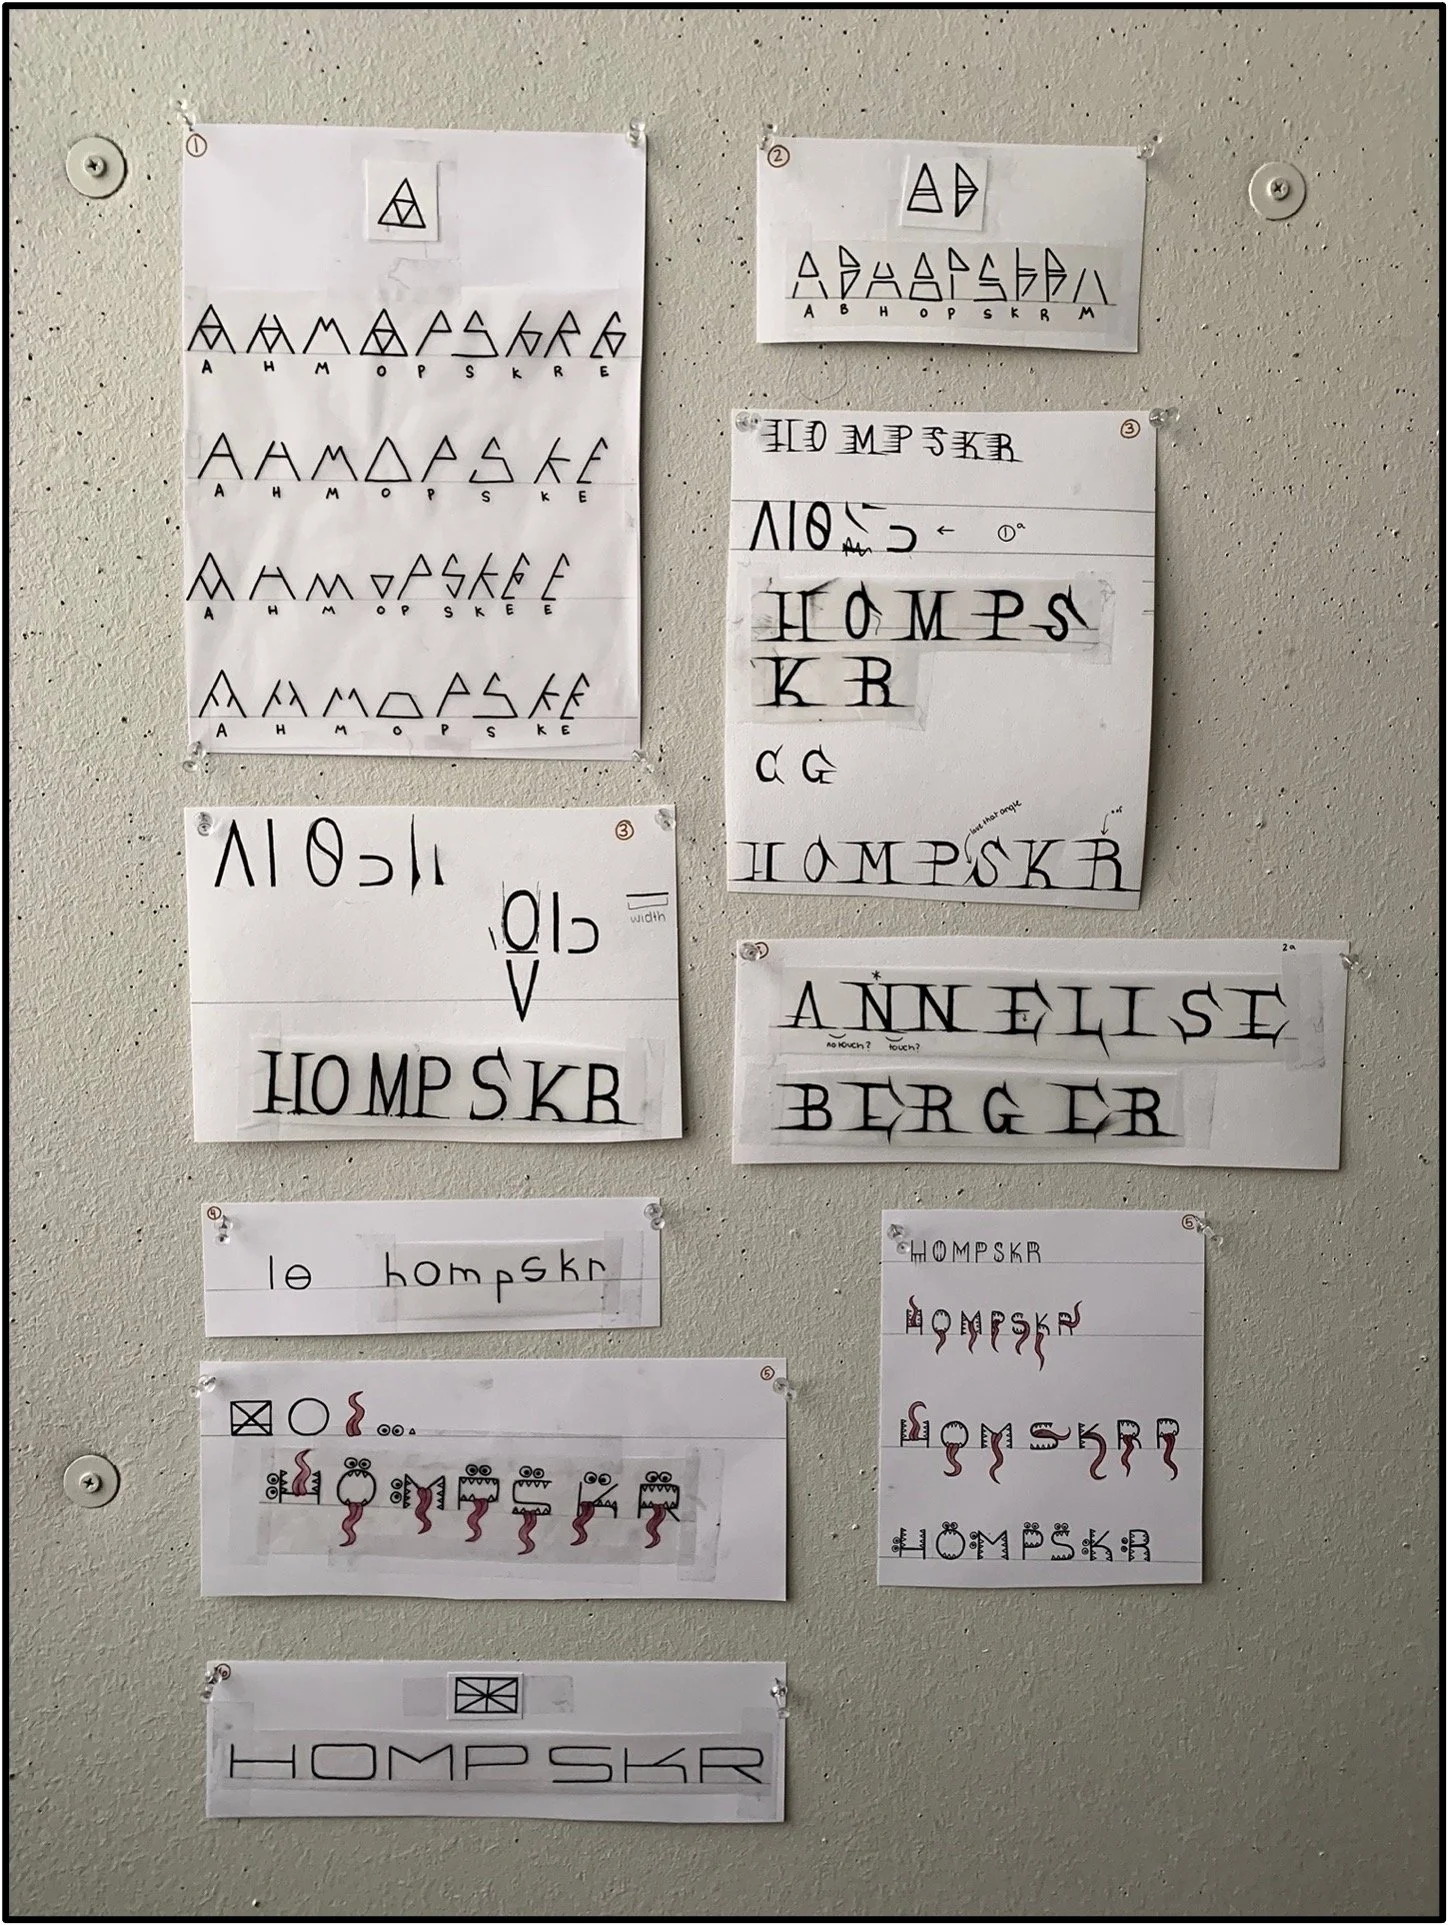 1
A H M O P S K R E
A H M O P S K R E
A H M O P S K E
A H M O P S K E
A H M O P S K E E
A H M O P S K E E
A H M O P S K E
A H M O P S K E
2
A B H O P S K R M
A B H O P S K R M
3
HOMPSKR
← 1a
HOMPS
KR
C G
love that angle
HOMPSKR
3
width
HOMPSKR
2a
*
ANNELISE
no touch? touch?
BERGER
4
lo hompskr
5
HOMPSKR
HOMPSKR
HOMSKPR
HOMPSKR
5
HOMPSKR
HOMPSKR